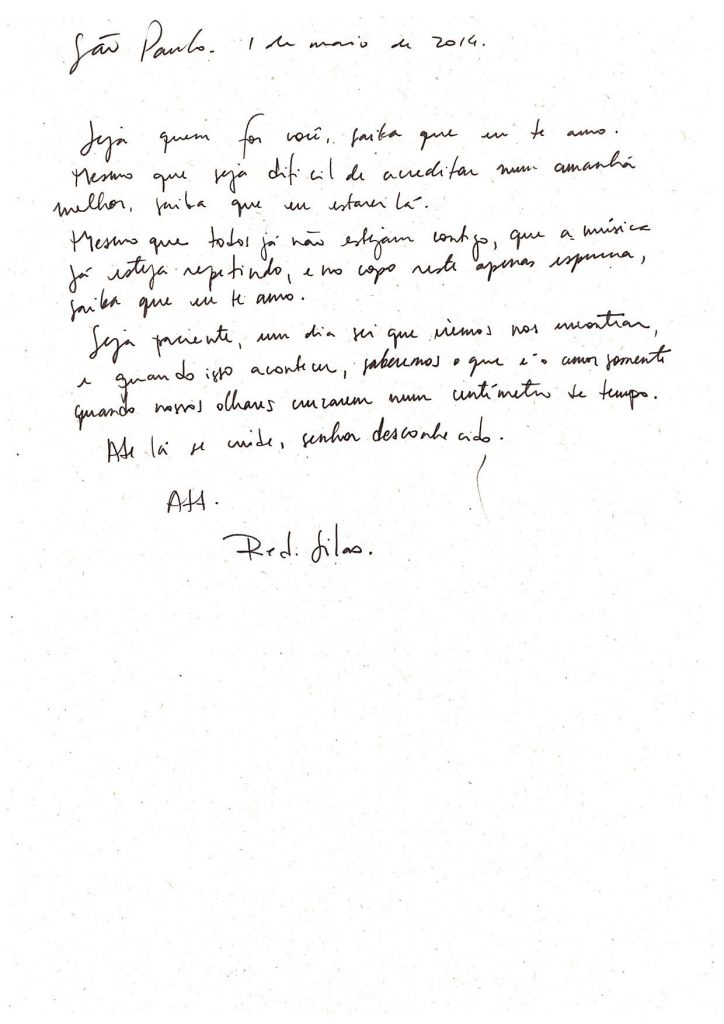 São Paulo. 1 de maio de 2014.
Seja quem for você, saiba que eu te amo.
Mesmo que seja dificil de acreditar num amanhã
melhor, saiba que eu estarei lá.
Mesmo que todos já não estejam contigo, que a música
já esteja repetindo, e no copo reste apenas espuma,
saiba que eu te amo.
Seja paciente, um dia sei que iremos nos encontrar,
e quando isso acontecer, saberemos o que é o amor somente
quando nossos olhares cruzarem num centímetro de tempo.
Até lá se cuide, senhor desconhecido.
Att.
Red. Silas.